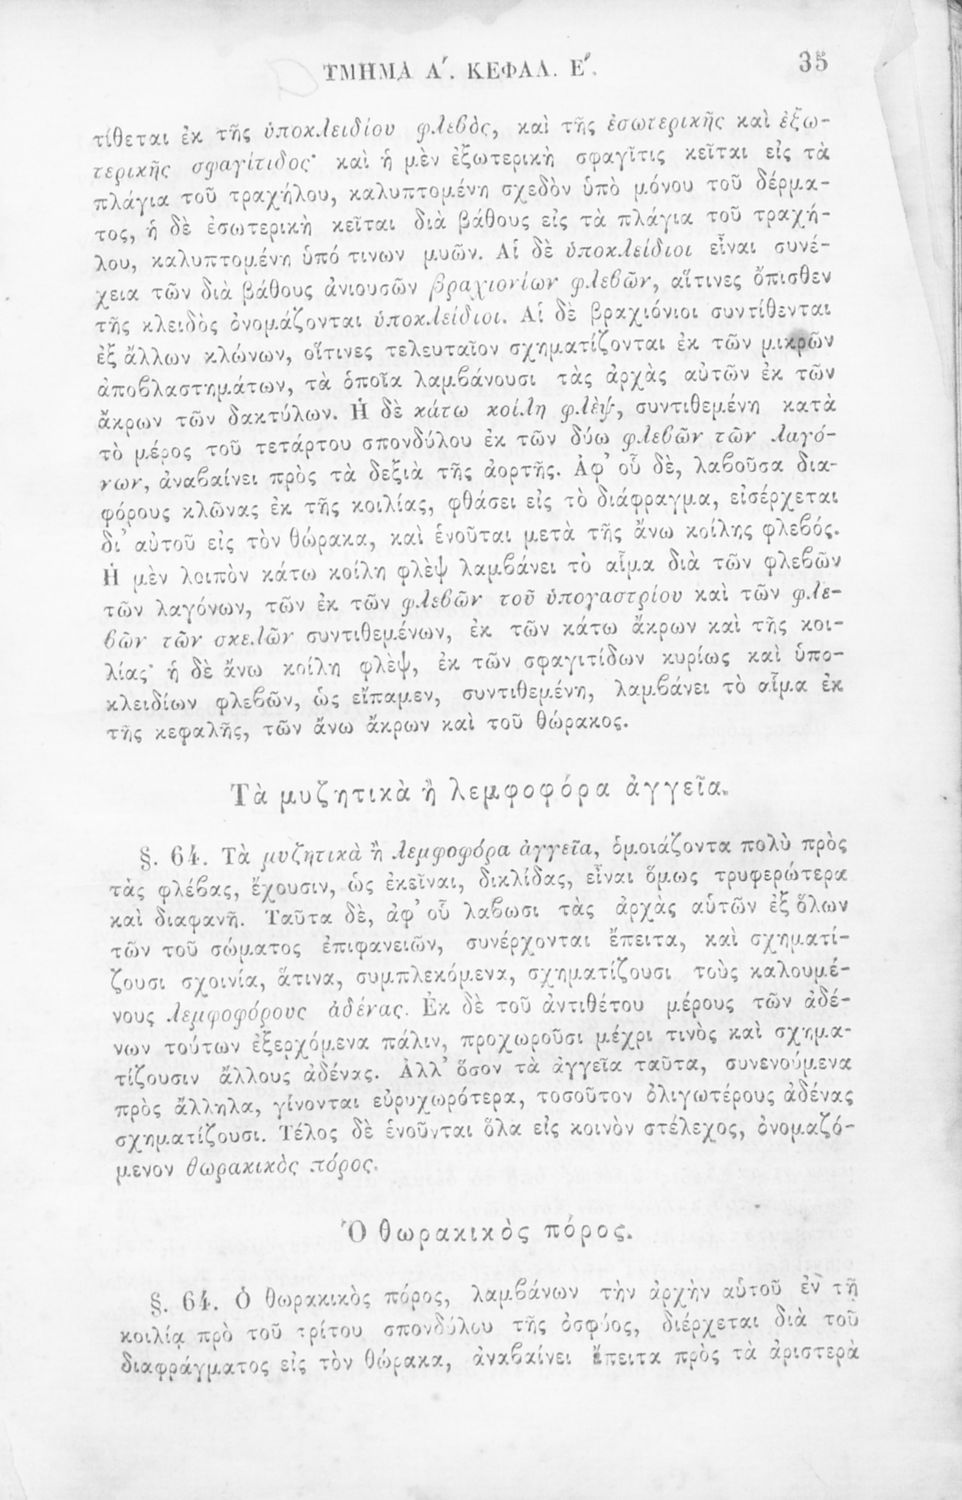 ΤΜΗΜΑ Α΄. ΚΕΦΑΛ. Ε΄. 35
τίθεται ἐκ τῆς ὑποκλειδίου φλεβὸς, καὶ τῆς ἐσωτερικῆς καὶ ἐξω-
τερικῆς σφαγίτιδος· καὶ ἡ μὲν ἐξωτερικὴ σφαγῖτις κεῖται εἰς τὰ
πλάγια τοῦ τραχήλου, καλυπτομένη σχεδὸν ὑπὸ μόνου τοῦ δέρμα-
τος, ἡ δὲ ἐσωτερικὴ κεῖται διὰ βάθους εἰς τὰ πλάγια τοῦ τραχή-
λου, καλυπτομένη ὑπό τινων μυῶν. Αἱ δὲ ὑποκλείδιοι εἶναι συνέ-
χεια τῶν διὰ βάθους ἀνιουσῶν βραχιονίων φλεβῶν, αἵτινες ὄπισθεν
τῆς κλειδὸς ὀνομάζονται ὑποκλείδιοι. Αἱ δὲ βραχιόνιοι συντίθενται
ἐξ ἄλλων κλώνων, οἵτινες τελευταῖον σχηματίζονται ἐκ τῶν μικρῶν
ἀποβλαστημάτων, τὰ ὁποῖα λαμβάνουσι τὰς ἀρχὰς αὐτῶν ἐκ τῶν
ἄκρων τῶν δακτύλων. Ἡ δὲ κάτω κοίλη φλὲψ, συντιθεμένη κατὰ
τὸ μέρος τοῦ τετάρτου σπονδύλου ἐκ τῶν δύω φλεβῶν τῶν λαγό-
νων, ἀναβαίνει πρὸς τὰ δεξιὰ τῆς ἀορτῆς. Ἀφ᾽ οὗ δὲ, λαβοῦσα δια-
φόρους κλῶνας ἐκ τῆς κοιλίας, φθάσει εἰς τὸ διάφραγμα, εἰσέρχεται
δι᾽ αὐτοῦ εἰς τὸν θώρακα, καὶ ἑνοῦται μετὰ τῆς ἄνω κοίλης φλεβός.
Ἡ μὲν λοιπὸν κάτω κοίλη φλὲψ λαμβάνει τὸ αἷμα διὰ τῶν φλεβῶν
τῶν λαγόνων, τῶν ἐκ τῶν φλεβῶν τοῦ ὑπογαστρίου καὶ τῶν φλε-
βῶν τῶν σκελῶν συντιθεμένων, ἐκ τῶν κάτω ἄκρων καὶ τῆς κοι-
λίας· ἡ δὲ ἄνω κοίλη φλὲψ, ἐκ τῶν σφαγιτίδων κυρίως καὶ ὑπο-
κλειδίων φλεβῶν, ὡς εἴπαμεν, συντιθεμένη, λαμβάνει τὸ αἷμα ἐκ
τῆς κεφαλῆς, τῶν ἄνω ἄκρων καὶ τοῦ θώρακος.
Τὰ μυζητικὰ ἢ λεμφοφόρα ἀγγεῖα.
§. 64. Τὰ μυζητικὰ ἢ λεμφοφόρα ἀγγεῖα, ὁμοιάζοντα πολὺ πρὸς
τὰς φλέβας, ἔχουσιν, ὡς ἐκεῖναι, δικλίδας, εἶναι ὅμως τρυφερώτερα
καὶ διαφανῆ. Ταῦτα δὲ, ἀφ᾽ οὗ λάβωσι τὰς ἀρχὰς αὑτῶν ἐξ ὅλων
τῶν τοῦ σώματος ἐπιφανειῶν, συνέρχονται ἔπειτα, καὶ σχηματί-
ζουσι σχοινία, ἅτινα, συμπλεκόμενα, σχηματίζουσι τοὺς καλουμέ-
νους λεμφοφόρους ἀδένας. Ἐκ δὲ τοῦ ἀντιθέτου μέρους τῶν ἀδέ-
νων τούτων ἐξερχόμενα πάλιν, προχωροῦσι μέχρι τινὸς καὶ σχημα-
τίζουσιν ἄλλους ἀδένας. Ἀλλ᾽ ὅσον τὰ ἀγγεῖα ταῦτα, συνενούμενα
πρὸς ἄλληλα, γίνονται εὐρυχωρότερα, τοσοῦτον ὀλιγωτέρους ἀδένας
σχηματίζουσι. Τέλος δὲ ἑνοῦνται ὅλα εἰς κοινὸν στέλεχος, ὀνομαζό-
μενον θωρακικὸς πόρος.
Ὁ θωρακικὸς πόρος.
§. 64. Ὁ θωρακικὸς πόρος, λαμβάνων τὴν ἀρχὴν αὑτοῦ ἐν τῇ
κοιλίᾳ πρὸ τοῦ τρίτου σπονδύλου τῆς ὀσφύος, διέρχεται διὰ τοῦ
διαφράγματος εἰς τὸν θώρακα, ἀναβαίνει ἔπειτα πρὸς τὰ ἀριστερὰ